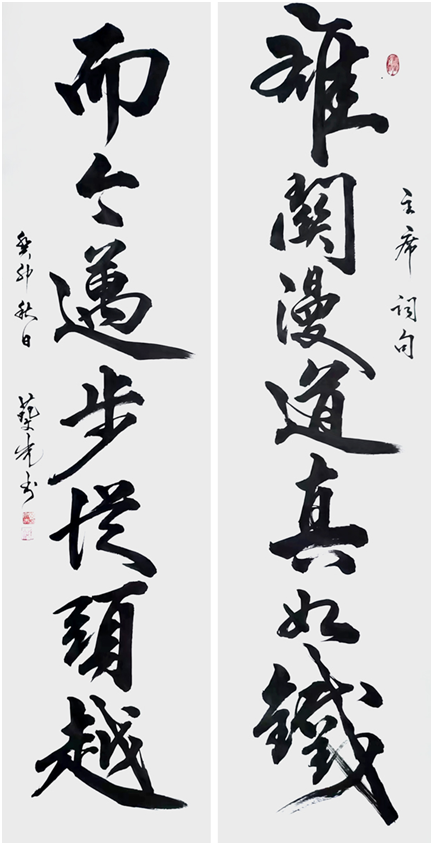 主席詞句
雄關漫道真如鐵
而今邁步從頭越
癸卯秋日 光书